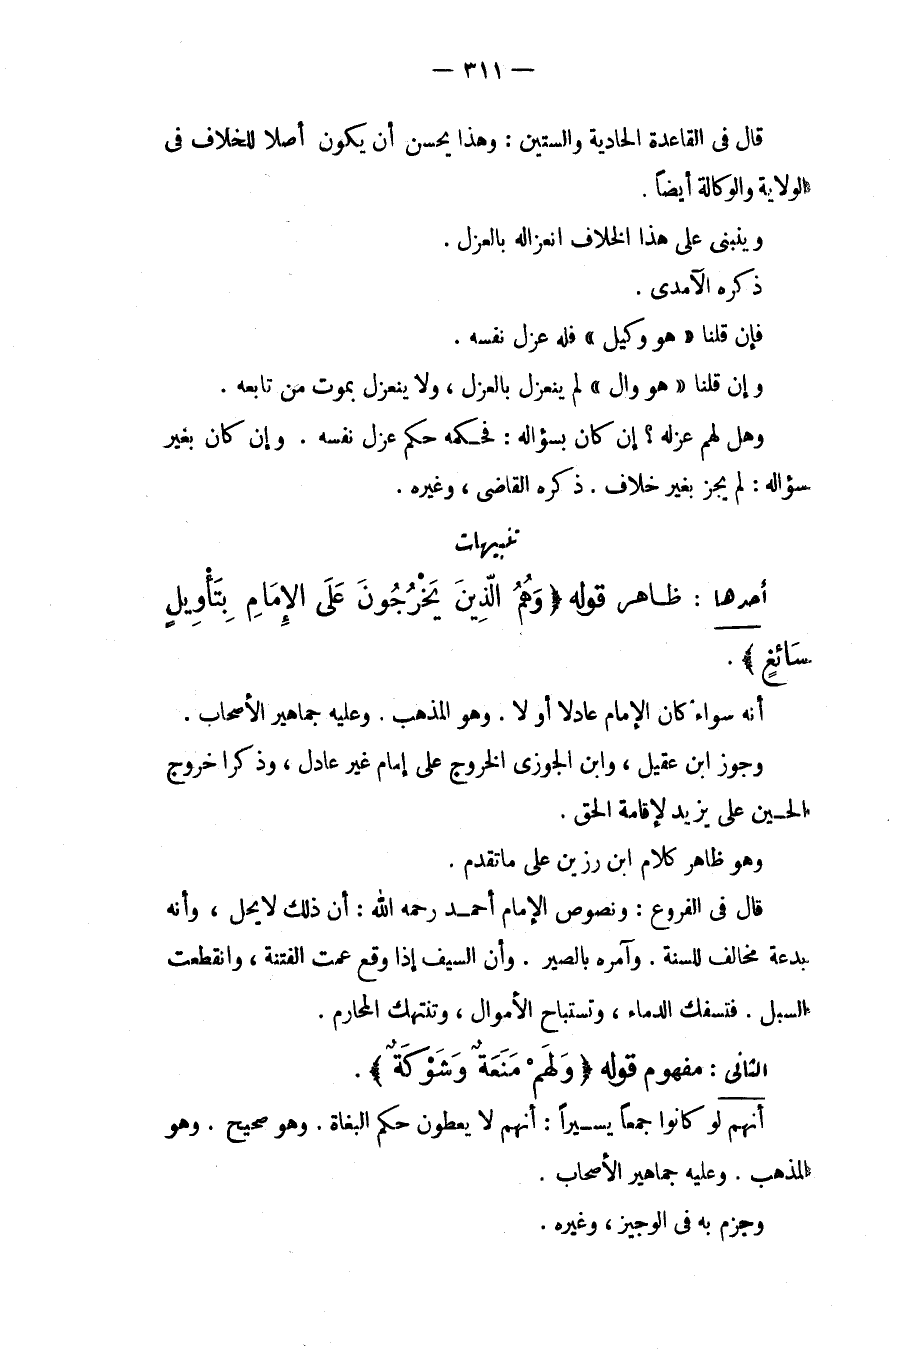 — ٣١١ —
قال فى القاعدة الحادية والستين : وهذا يحسن أن يكون أصلا للخلاف فى
الولاية والوكالة أيضاً .
وينبنى على هذا الخلاف انعزاله بالعزل .
ذكره الآمدى .
فإن قلنا « هو وكيل » فله عزل نفسه .
وإن قلنا « هو وال » لم ينعزل بالعزل ، ولا ينعزل بموت من تابعه .
وهل لهم عزله ؟ إن كان بسؤاله : فحكمه حكم عزل نفسه . وإن كان بغير
سؤاله : لم يجز بغير خلاف . ذكره القاضى ، وغيره .
تنبيهات
أحدها : ظاهر قوله ﴿ وَهُمُ الَّذِينَ يَخْرُجُونَ عَلَى الإِمَامِ بِتَأْوِيلٍ
سَائِغٍ ﴾ .
أنه سواء كان الإمام عادلا أو لا . وهو المذهب . وعليه جماهير الأصحاب .
وجوز ابن عقيل ، وابن الجوزى الخروج على إمام غير عادل ، وذكرا خروج
الحسين على يزيد لإقامة الحق .
وهو ظاهر كلام ابن رزين على ماتقدم .
قال فى الفروع : ونصوص الإمام أحمد رحمه الله : أن ذلك لايحل ، وأنه
بدعة مخالف للسنة . وآمره بالصبر . وأن السيف إذا وقع عمت الفتنة ، وانقطعت
السبل . فتسفك الدماء ، وتستباح الأموال ، وتنتهك المحارم .
الثانى : مفهوم قوله ﴿ وَلَهُمْ مَنَعَةٌ وَشَوْكَةٌ ﴾ .
أنهم لو كانوا جمعاً يسيراً : أنهم لا يعطون حكم البغاة . وهو صحيح . وهو
المذهب . وعليه جماهير الأصحاب .
وجزم به فى الوجيز ، وغيره .